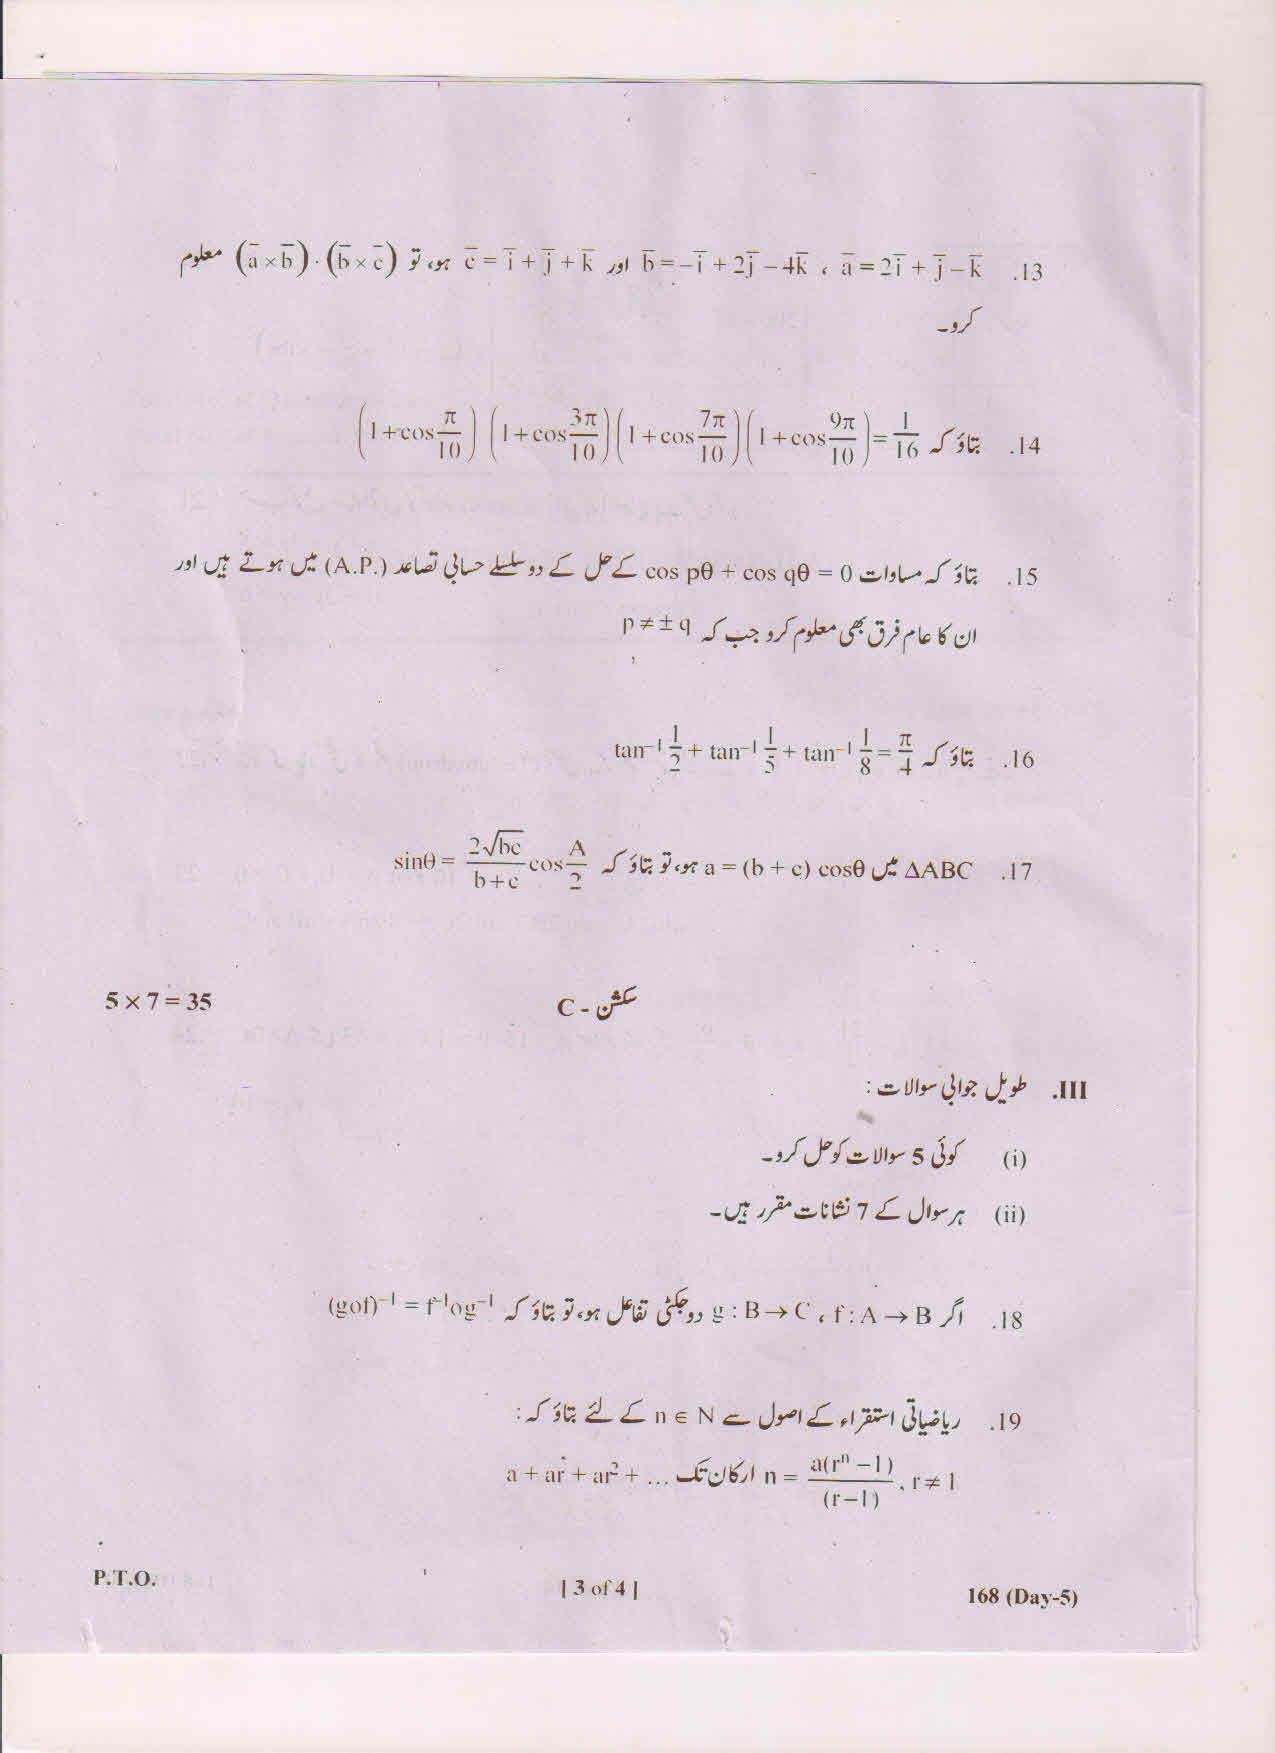 13. a̅ = 2i̅ + j̅ − k̅ ، b̅ = −i̅ + 2j̅ − 4k̅ اور c̅ = i̅ + j̅ + k̅ ہو، تو (a̅ × b̅) · (b̅ × c̅) معلوم
کرو۔
14. بتاؤ کہ (1 + cos π/10) (1 + cos 3π/10) (1 + cos 7π/10) (1 + cos 9π/10) = 1/16
15. بتاؤ کہ مساوات cos pθ + cos qθ = 0 کے حل کے دو سلسلے حسابی تصاعد (A.P.) میں ہوتے ہیں اور
ان کا عام فرق بھی معلوم کرو جب کہ p ≠ ± q
16. بتاؤ کہ tan⁻¹ 1/2 + tan⁻¹ 1/5 + tan⁻¹ 1/8 = π/4
17. ΔABC میں a = (b + c) cosθ ہو، تو بتاؤ کہ sinθ = 2√bc/(b+c) cos A/2
سکشن - C 5 × 7 = 35
III. طویل جوابی سوالات :
(i) کوئی 5 سوالات کو حل کرو۔
(ii) ہر سوال کے 7 نشانات مقرر ہیں۔
18. اگر f : A → B ، g : B → C دوجکٹی تفاعل ہو، تو بتاؤ کہ (gof)⁻¹ = f⁻¹og⁻¹
19. ریاضیاتی استقراء کے اصول سے n ∈ N کے لئے بتاؤ کہ:
a + ar + ar² + ... ارکان تک n = a(rⁿ − 1)/(r − 1), r ≠ 1
P.T.O. [ 3 of 4 ] 168 (Day-5)